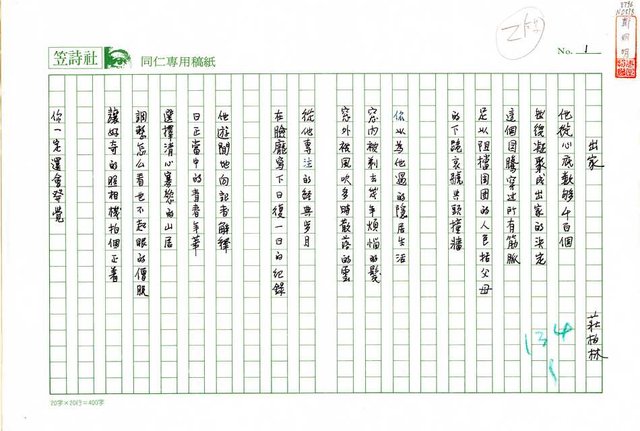 笠詩社
同仁專用稿紙
No. 1
出家
莊柏林
他從心底數夠千百個
執後凝聚成出家的決定
這個圖騰穿過所有筋脈
足以阻擋周圍的人包括父母
的下跪哀號與頭撞牆
你以為他過的隱居生活
窓內被剃去幾年煩惱的髮
窓外被風吹多時散落的雲
從他專注的經典歲月
在臉龐寫下日復一日的紀錄
他遊閒地向記者解釋
日正當中的青春年華
選擇清心寡慾的山居
調整怎么看也不起眼的僧服
讓好奇的照相機拍個正著
你一定還會發覺
134
20字×20行=400字